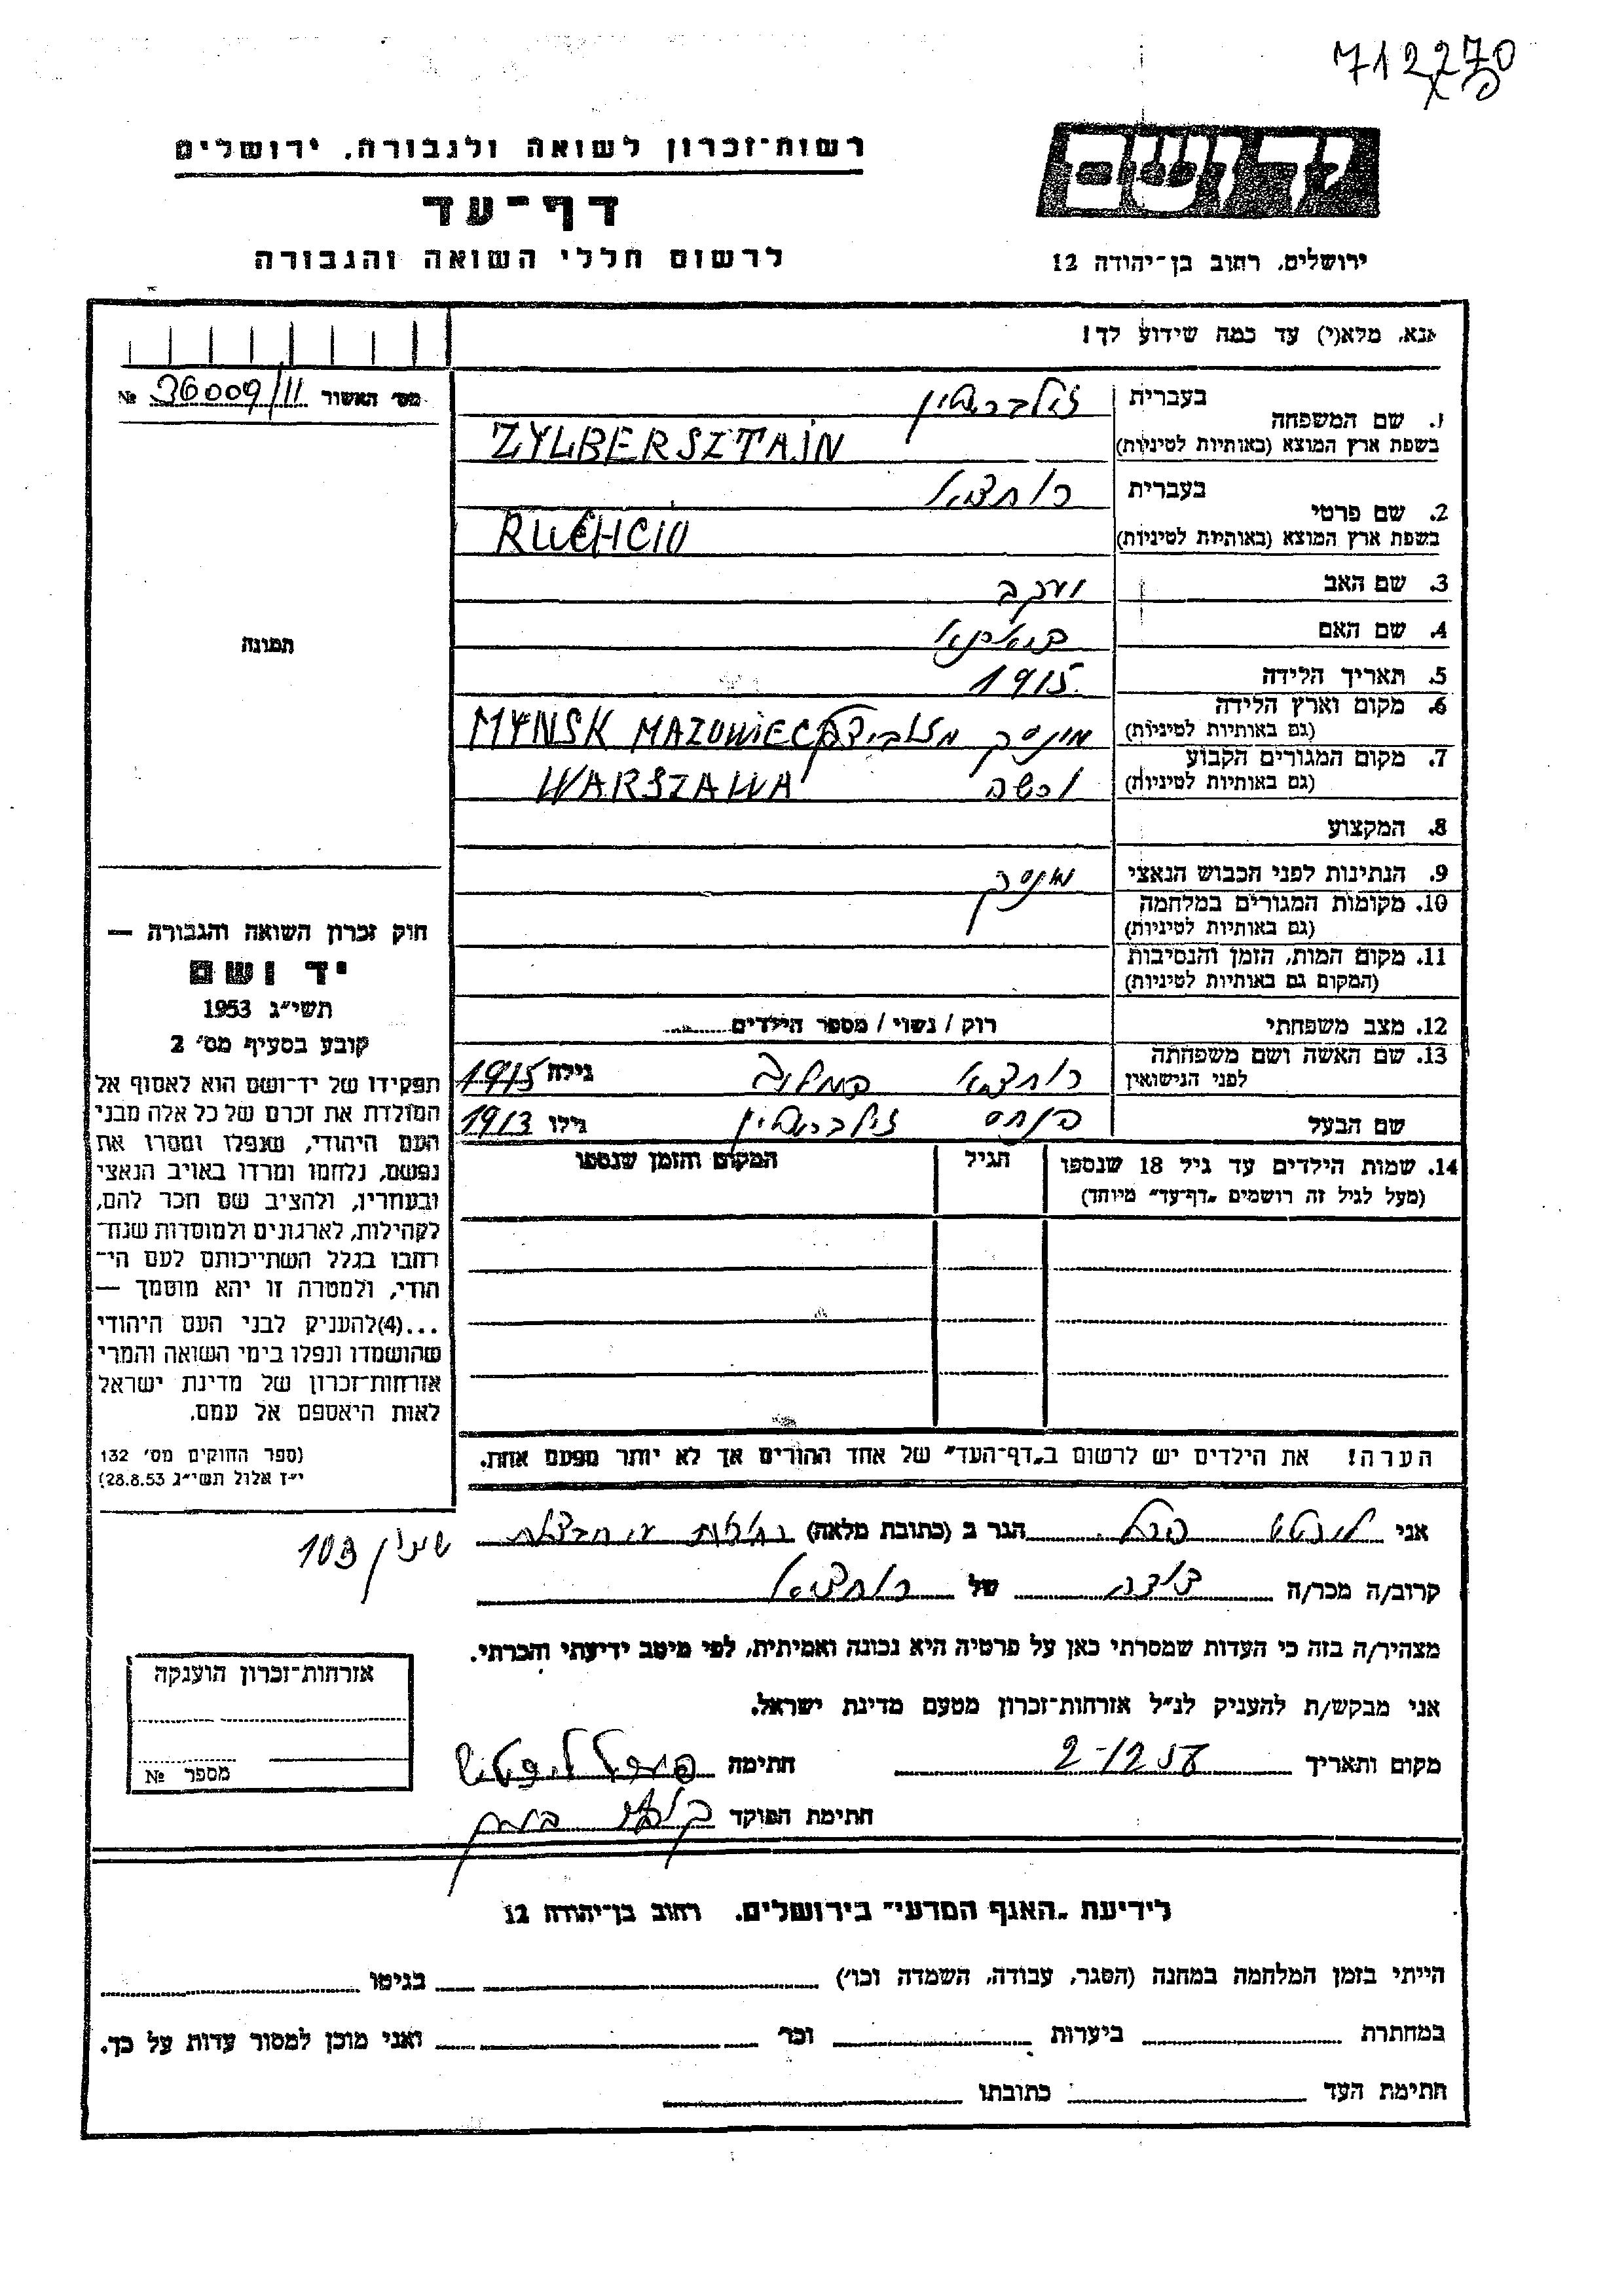 712270
רשות־זכרון לשואה ולגבורה, ירושלים
דף־עד
לרשום חללי השואה והגבורה
יד ושם
ירושלים, רחוב בן־יהודה 12
אנא, מלא(י) עד כמה שידוע לך!
מס׳ האשור 36009/11 №
1. שם המשפחה
בעברית זילברשטיין
בשפת ארץ המוצא (באותיות לטיניות) ZYLBERSZTAJN
2. שם פרטי
בעברית
בשפת ארץ המוצא (באותיות לטיניות) RUCHCIO
3. שם האב יעקב
4. שם האם
5. תאריך הלידה 1915
6. מקום וארץ הלידה
(גם באותיות לטיניות) מינסק MYNSK MAZOWIECK
7. מקום המגורים הקבוע
(גם באותיות לטיניות) ורשה WARSZAWA
8. המקצוע
9. הנתינות לפני הכבוש הנאצי מינסק
10. מקומות המגורים במלחמה
(גם באותיות לטיניות)
11. מקום המות, הזמן והנסיבות
(המקום גם באותיות לטיניות)
12. מצב משפחתי רוק / נשוי / מספר הילדים
13. שם האשה ושם משפחתה
לפני הנישואין גילה 1915
שם הבעל פנחס זילברשטיין גילו 1913
14. שמות הילדים עד גיל 18 שנספו הגיל המקום והזמן שנספו
(מעל לגיל זה רושמים „דף־עד״ מיוחד)
הערה! את הילדים יש לרשום ב„דף־העד״ של אחד ההורים אך לא יותר מפעם אחת.
תמונה
חוק זכרון השואה והגבורה —
יד ושם
תשי״ג 1953
קובע בסעיף מס׳ 2
תפקידו של יד־ושם הוא לאסוף אל
המולדת את זכרם של כל אלה מבני
העם היהודי, שנפלו ומסרו את
נפשם, נלחמו ומרדו באויב הנאצי
ובעוזריו, ולהציב שם וזכר להם,
לקהילות, לארגונים ולמוסדות שנח־
רבו בגלל השתייכותם לעם הי־
הודי, ולמטרה זו יהא מוסמך —
...(4) להעניק לבני העם היהודי
שהושמדו ונפלו בימי השואה והמרי
אזרחות־זכרון של מדינת ישראל
לאות היאספם אל עמם.
(ספר החוקים מס׳ 132
י״ז אלול תשי״ג 28.8.53)
אני הגר ב (כתובת מלאה)
שיכון 103
קרוב/ה מכר/ה של
מצהיר/ה בזה כי העדות שמסרתי כאן על פרטיה היא נכונה ואמיתית, לפי מיטב ידיעתי והכרתי.
אני מבקש/ת להעניק לנ״ל אזרחות־זכרון מטעם מדינת ישראל.
מקום ותאריך חתימה
חתימת הפוקד
אזרחות־זכרון הוענקה
מספר №
לידיעת „האגף המדעי״ בירושלים, רחוב בן־יהודה 12
הייתי בזמן המלחמה במחנה (הסגר, עבודה, השמדה וכו׳) בגיטו
במחתרת ביערות וכו׳ ואני מוכן למסור עדות על כך.
חתימת העד כתובתו